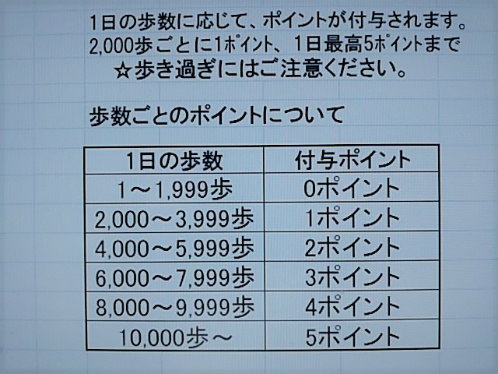 1日の歩数に応じて、ポイントが付与されます。
2,000歩ごとに1ポイント、1日最高5ポイントまで
☆歩き過ぎにはご注意ください。
歩数ごとのポイントについて
1日の歩数 付与ポイント
1～1,999歩 0ポイント
2,000～3,999歩 1ポイント
4,000～5,999歩 2ポイント
6,000～7,999歩 3ポイント
8,000～9,999歩 4ポイント
10,000歩～ 5ポイント